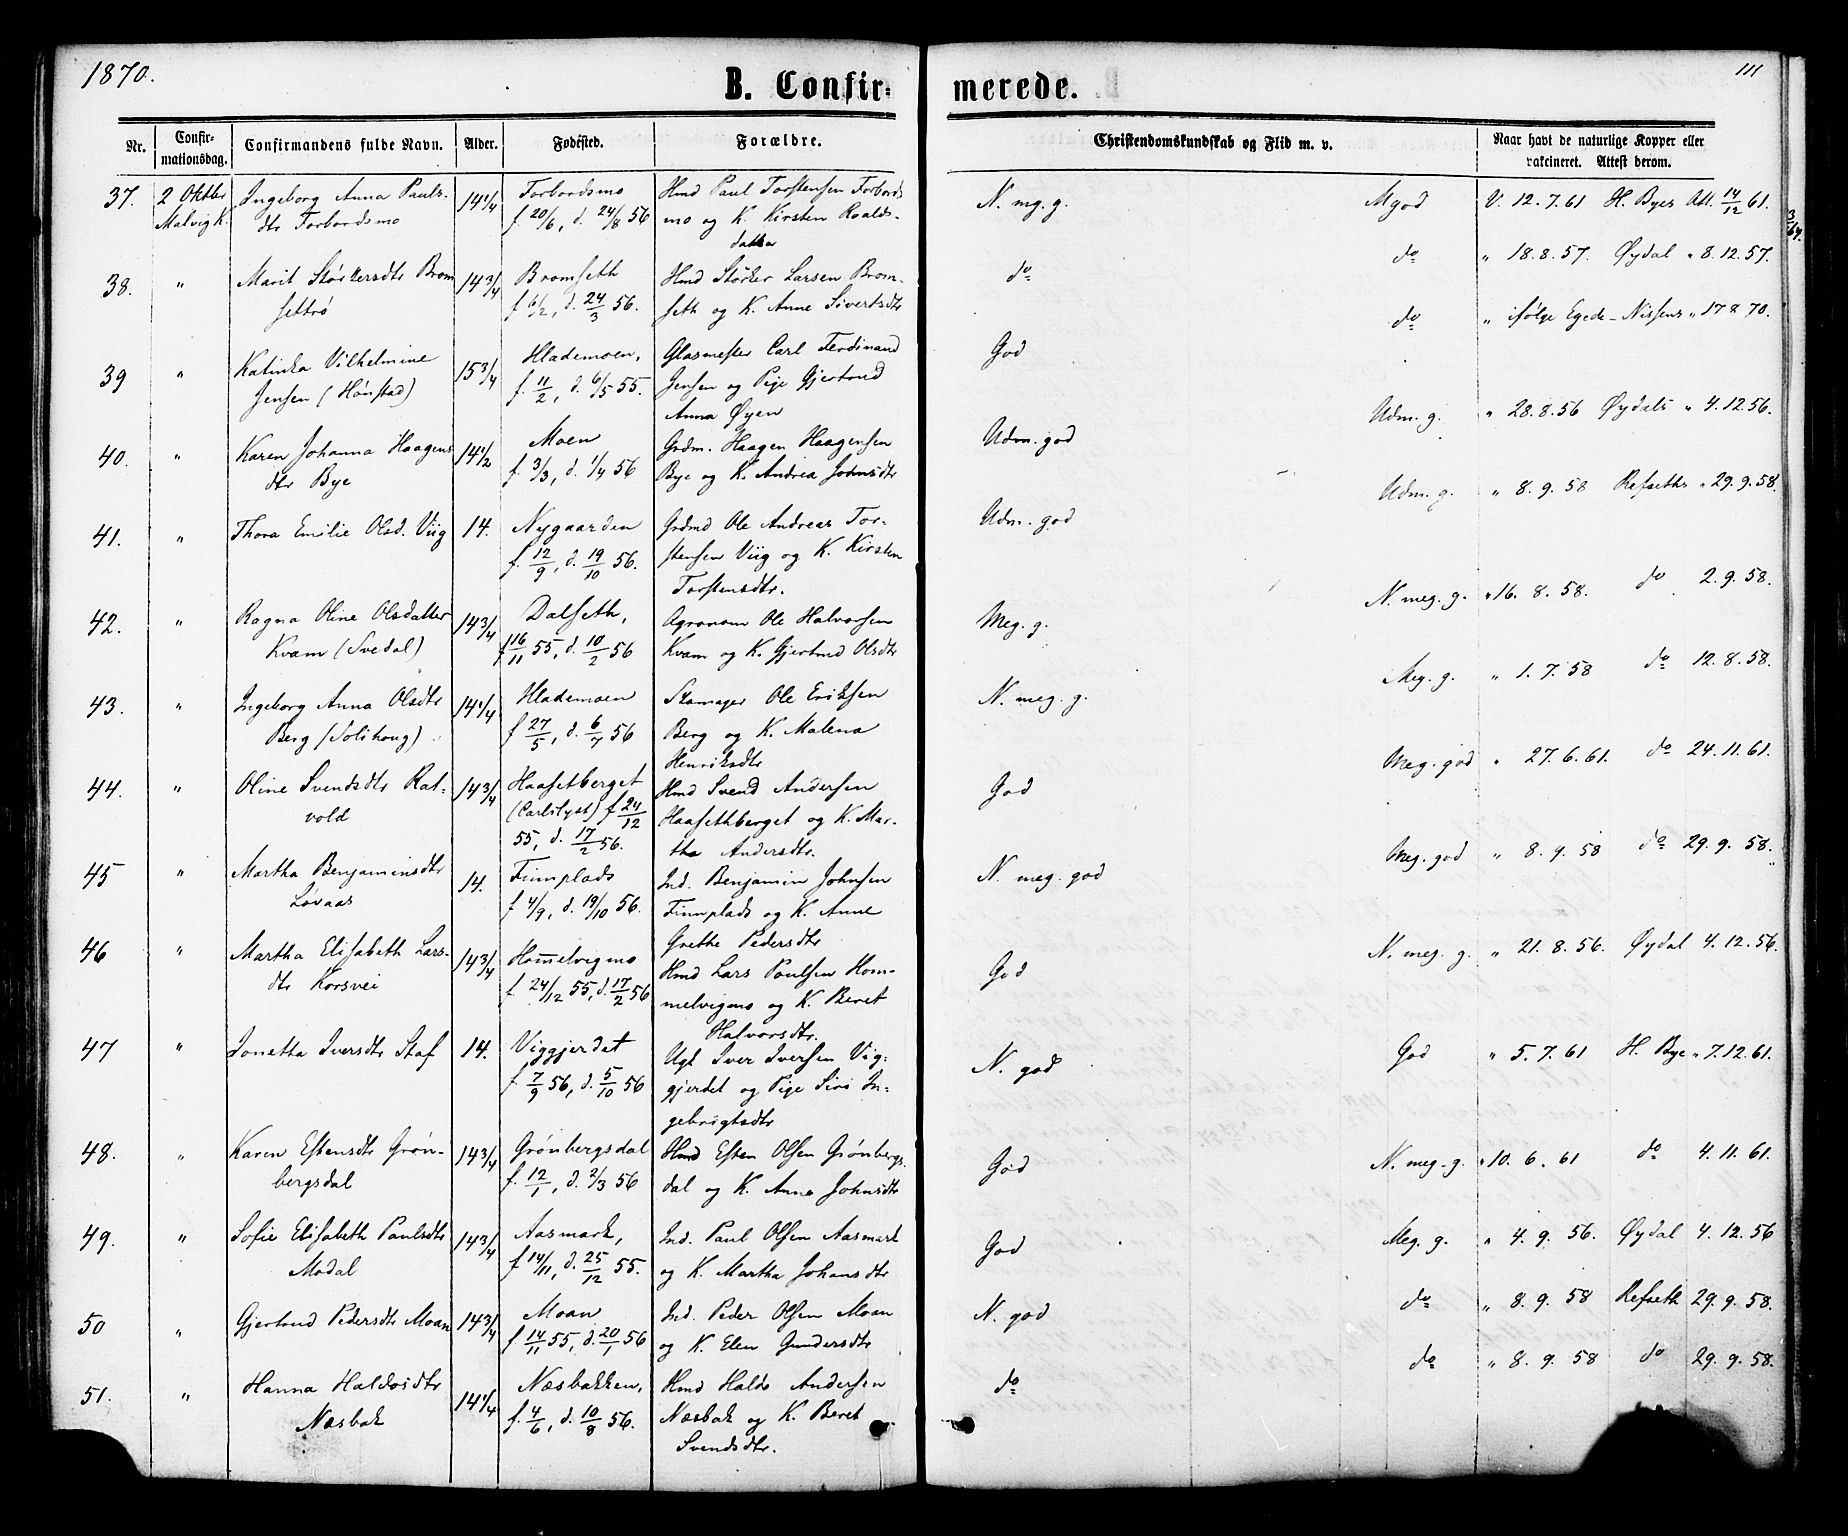 1870.
B. Confirmerede.
111
Nr.
Confirmationsdag.
Confirmandens fulde Navn.
Alder.
Fødested.
Forældre.
Christendomskundskab og Flid m. v.
Naar havt de naturlige Kopper eller vakcineret. Attest derom.
37. 2 Oktbr Malvig K. Ingeborg Anna Pauls-
dtr Forbordsmo 14 1/4 Forbordsmo
f. 20/6, d. 24/8 56
Hmd Paul Torstensen Forbords
mo og K. Kirsten Roalds-
datter
N. mg. g. Mgod V. 12.7.61 H. Byes Att. 14/12 61.
3/64.
38. " Marit Størkersdtr Brom
settrø 14 3/4 Bromseth
f. 6/2, d. 24/3 56.
Hmd Størker Larsen Brom-
seth og K. Anne Sivertsdtr
do do " 18.8.57. Øydal " 8.12.57.
39 " Katinka Vilhelmine
Jensen (Hønstad) 15 3/4 Hlademoen,
f. 11/2, d. 6/5 55.
Glasmester Carl Ferdinand
Jensen og Pige Gjertrud
Anna Øyen
God do " ifølge Egede-Nissens " 17 8 70.
40. " Karen Johanna Haagens
dtr Bye 14 1/2 Moen
f. 3/3, d. 1/4 56
Grdm. Haagen Haagensen
Bye og K. Andrea Johnsdtr
Udm. god Udm. g. " 28.8.56 Øydals " 4.12.56.
41. " Thora Emilie Olsd. Viig 14. Nygaarden
f. 12/9, d. 19/10 56.
Grdmd Ole Andreas Tor-
stensen Viig og K. Kirsten
Torstensdtr.
Udm. god Udm. g. " 8.9.58 Refseths " 29.9.58.
42. " Ragna Oline Olsdatter
Kvam (Svedal) 14 3/4 Dalseth,
f 16/11 55, d. 10/2 56
Agronom Ole Halvorsen
Kvam og K. Gjertrud Olsdtr
Meg. g. N. meg. g. " 16.8.58. do 2.9.58.
43. " Ingeborg Anna Olsdtr
Berg (Solihoug) 14 1/4 Hlademoen
f 27/5, d. 6/7 56
Skomager Ole Eriksen
Berg og K. Malena
Henriksdtr
N. meg. g. Meg. g. " 1.7.58 do 12.8.58.
44. " Oline Svendsdtr Rat-
vold 14 3/4 Haasetberget
(Carlslyst) f 24/12
55, d. 17/2 56.
Hmd Svend Andersen
Haasethberget og K. Mar-
tha Andersdtr.
God Meg. god " 27.6.61. do 24.11.61.
45 " Martha Benjaminsdtr
Løvaas 14. Finnplads
f 4/9, d. 19/10 56.
Ind. Benjamin Johnsen
Finnplads og K. Anne
Grethe Pedersdtr
N. meg. god Meg. god " 8.9.58 do 29.9.58.
46 " Martha Elisabeth Lars-
dtr Korsvei 14 3/4 Homelvigmo
f. 24/12 55, d. 17/2 56
Hmd Lars Paulsen Hom-
melvigmo og K. Beret
Halvorsdtr.
God N. meg. g. " 21.8.56. Øydal 4.12.56.
47 " Jonetta Iversdtr Staf 14. Viggjerdet
f. 7/9 56, d. 5/10 56
Ugt Iver Iversen Vig-
gjerdet og Pige Siri In-
gebrigtsdtr
N. god God " 5.7.61 H. Bye " 7.12.61.
48. " Karen Estensdtr Grøn-
bergsdal 14 3/4 Grønbergsdal
f. 12/1, d. 2/3 56
Hmd Esten Olsen Grønbergs
dal og K. Anne Johnsdtr
God N. meg. g. " 10.6.61 do 4.11.61.
49. " Sofie Elisabeth Paulsdtr
Modal 14 3/4 Aasmark,
f 14/11, d. 25/12 55.
Ind. Paul Olsen Aasmark
og K. Martha Johansdtr
God Meg. g. " 4.9.56. Øydal 4.12.56
50 " Gjertrud Pedersdtr Moan 14 3/4 Moan
f. 14/11 55, d. 20/1 56
Ind. Peder Olsen Moan
og K. Elen Gundersdtr
N. god do " 8.9.58 Refseth 29.9.58.
51. " Hanna Haldosdtr
Næsbak 14 1/4 Næsbakken,
f. 4/6, d. 10/8 56.
Hmd Haldo Andersen
Næsbak og K. Beret
Svendsdtr.
do do " 8.9.58 do 29.9.58.